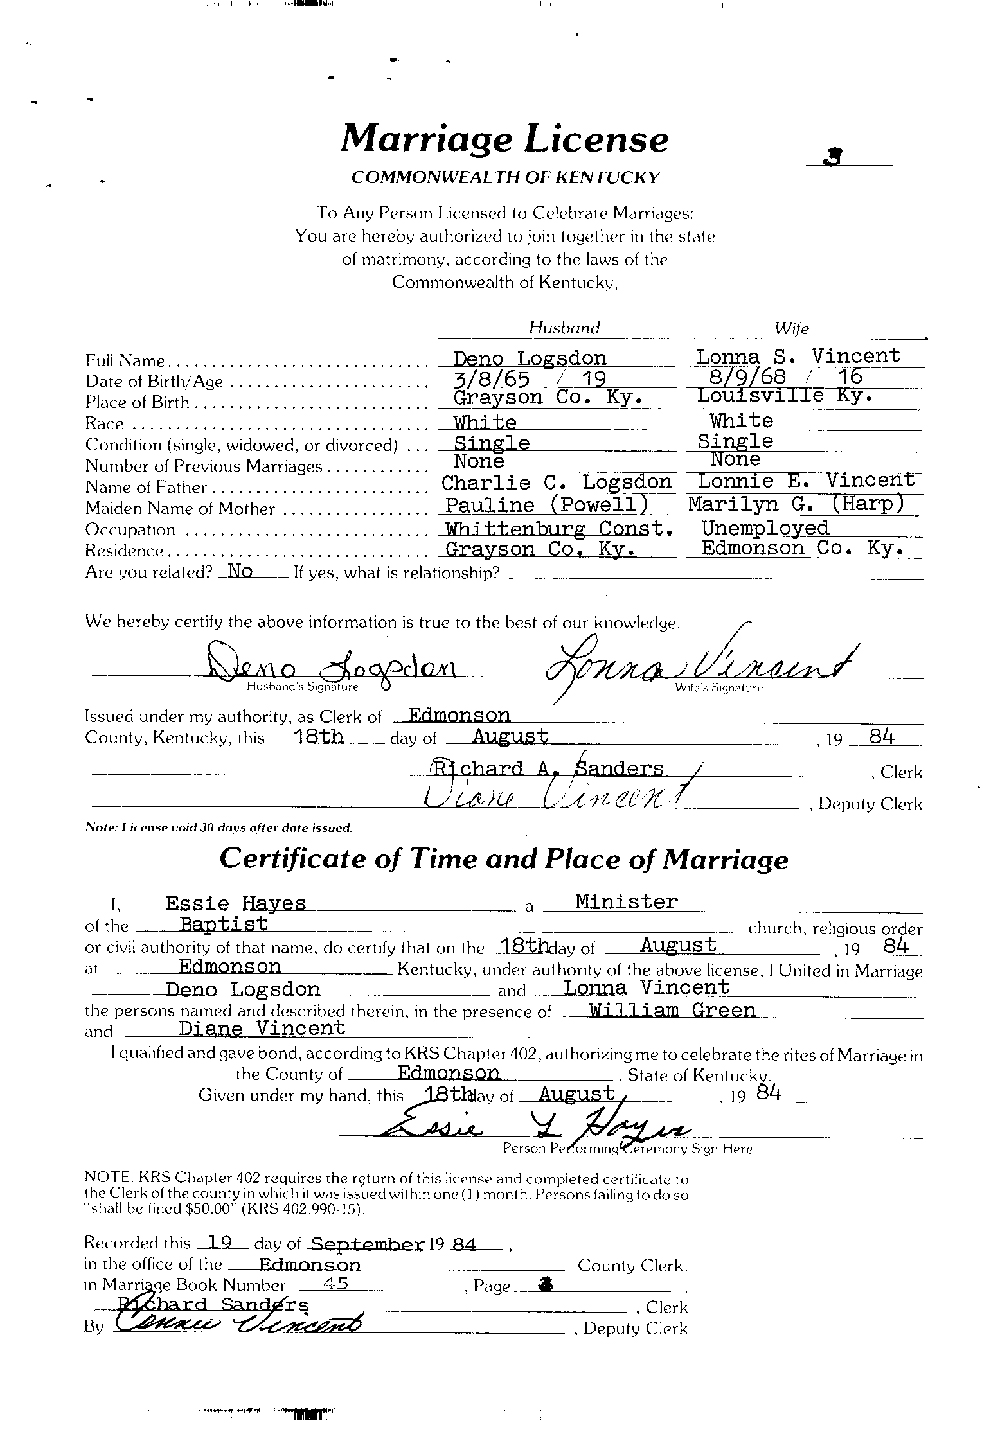 Marriage License
3
COMMONWEALTH OF KENTUCKY
To Any Person Licensed to Celebrate Marriages:
You are hereby authorized to join together in the state
of matrimony, according to the laws of the
Commonwealth of Kentucky,
Husband Wife
Full Name Deno Logsdon Lonna S. Vincent
Date of Birth/Age 3/8/65 / 19 8/9/68 / 16
Place of Birth Grayson Co. Ky. Louisville Ky.
Race White White
Condition (single, widowed, or divorced) Single Single
Number of Previous Marriages None None
Name of Father Charlie C. Logsdon Lonnie E. Vincent
Maiden Name of Mother Pauline (Powell) Marilyn G. (Harp)
Occupation Whittenburg Const. Unemployed
Residence Grayson Co. Ky. Edmonson Co. Ky.
Are you related? No If yes, what is relationship?
We hereby certify the above information is true to the best of our knowledge.
Deno Logsdon Lonna Vincent
Husband's Signature Wife's Signature
Issued under my authority, as Clerk of Edmonson
County, Kentucky, this 18th day of August , 19 84
Richard A. Sanders , Clerk
Diane Vincent , Deputy Clerk
Note: License void 30 days after date issued.
Certificate of Time and Place of Marriage
I, Essie Hayes a Minister
of the Baptist church, religious order
or civil authority of that name, do certify that on the 18th day of August , 19 84
at Edmonson Kentucky, under authority of the above license, I United in Marriage
Deno Logsdon and Lonna Vincent
the persons named and described therein, in the presence of William Green
and Diane Vincent
I qualified and gave bond, according to KRS Chapter 402, authorizing me to celebrate the rites of Marriage in
the County of Edmonson , State of Kentucky.
Given under my hand, this 18th day of August , 19 84
Essie Y Hayes
Person Performing Ceremony Sign Here
NOTE: KRS Chapter 402 requires the return of this license and completed certificate to
the Clerk of the county in which it was issued within one (1) month. Persons failing to do so
"shall be fined $50.00" (KRS 402.990-15).
Recorded this 19 day of September 19 84 ,
in the office of the Edmonson County Clerk.
in Marriage Book Number 45 , Page 3 .
Richard Sanders , Clerk
By Connie Vincent , Deputy Clerk